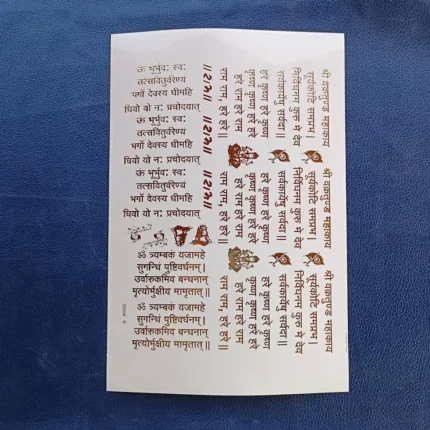 ऊं भूर्भुवः स्वः
तत्सवितुर्वरेण्य
भर्गो देवस्य धीमहि
धियो यो नः प्रचोदयात्
ऊं भूर्भुवः स्वः
तत्सवितुर्वरेण्य
भर्गो देवस्य धीमहि
धियो यो नः प्रचोदयात्
ऊं भूर्भुवः स्वः
तत्सवितुर्वरेण्य
भर्गो देवस्य धीमहि
धियो यो नः प्रचोदयात्
ॐ त्र्यम्बकं यजामहे
सुगन्धिं पुष्टिवर्धनम्।
उर्वारुकमिव बन्धनान्
मृत्योर्मुक्षीय मामृतात्॥
ॐ त्र्यम्बकं यजामहे
सुगन्धिं पुष्टिवर्धनम्।
उर्वारुकमिव बन्धनान्
मृत्योर्मुक्षीय मामृतात्॥
॥राम॥
॥राम॥
॥राम॥
श्री वक्रतुण्ड महाकाय
सूर्यकोटि समप्रभ।
निर्विघ्नम कुरु मे देव
सर्वकार्येषु सर्वदा॥
हरे कृष्ण हरे कृष्ण
कृष्ण कृष्ण हरे हरे
हरे राम हरे राम
राम राम, हरे हरे॥
श्री वक्रतुण्ड महाकाय
सूर्यकोटि समप्रभ।
निर्विघ्नम कुरु मे देव
सर्वकार्येषु सर्वदा॥
हरे कृष्ण हरे कृष्ण
कृष्ण कृष्ण हरे हरे
हरे राम हरे राम
राम राम, हरे हरे॥
श्री वक्रतुण्ड महाकाय
सूर्यकोटि समप्रभ।
निर्विघ्नम कुरु मे देव
सर्वकार्येषु सर्वदा॥
हरे कृष्ण हरे कृष्ण
कृष्ण कृष्ण हरे हरे
हरे राम हरे राम
राम राम, हरे हरे॥